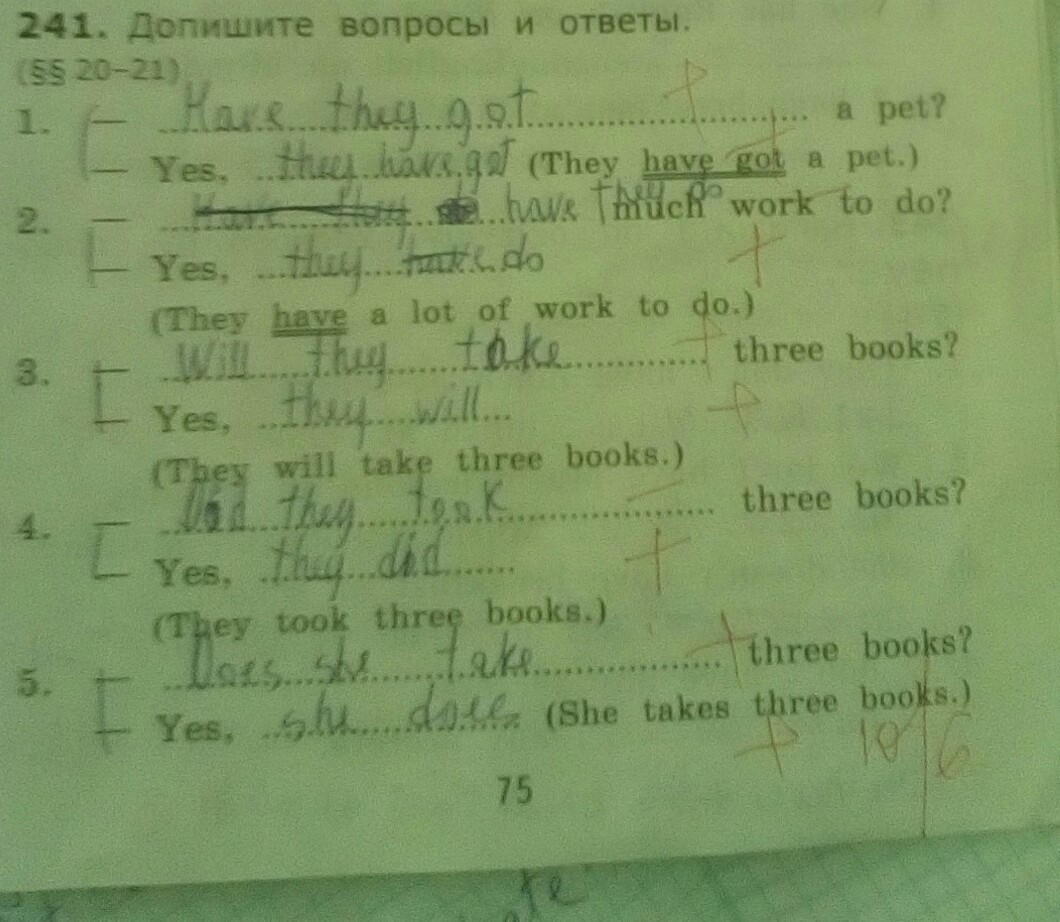 241. Допишите вопросы и ответы.
(§§ 20–21)
1. — Have they got a pet?
— Yes, they have got (They have got a pet.)
2. — have they do much work to do?
— Yes, they do
(They have a lot of work to do.)
3. Will they take three books?
Yes, they will
(They will take three books.)
4. Did they took three books?
Yes, they did
(They took three books.)
5. Does she take three books?
Yes, she does (She takes three books.)
10/6
75